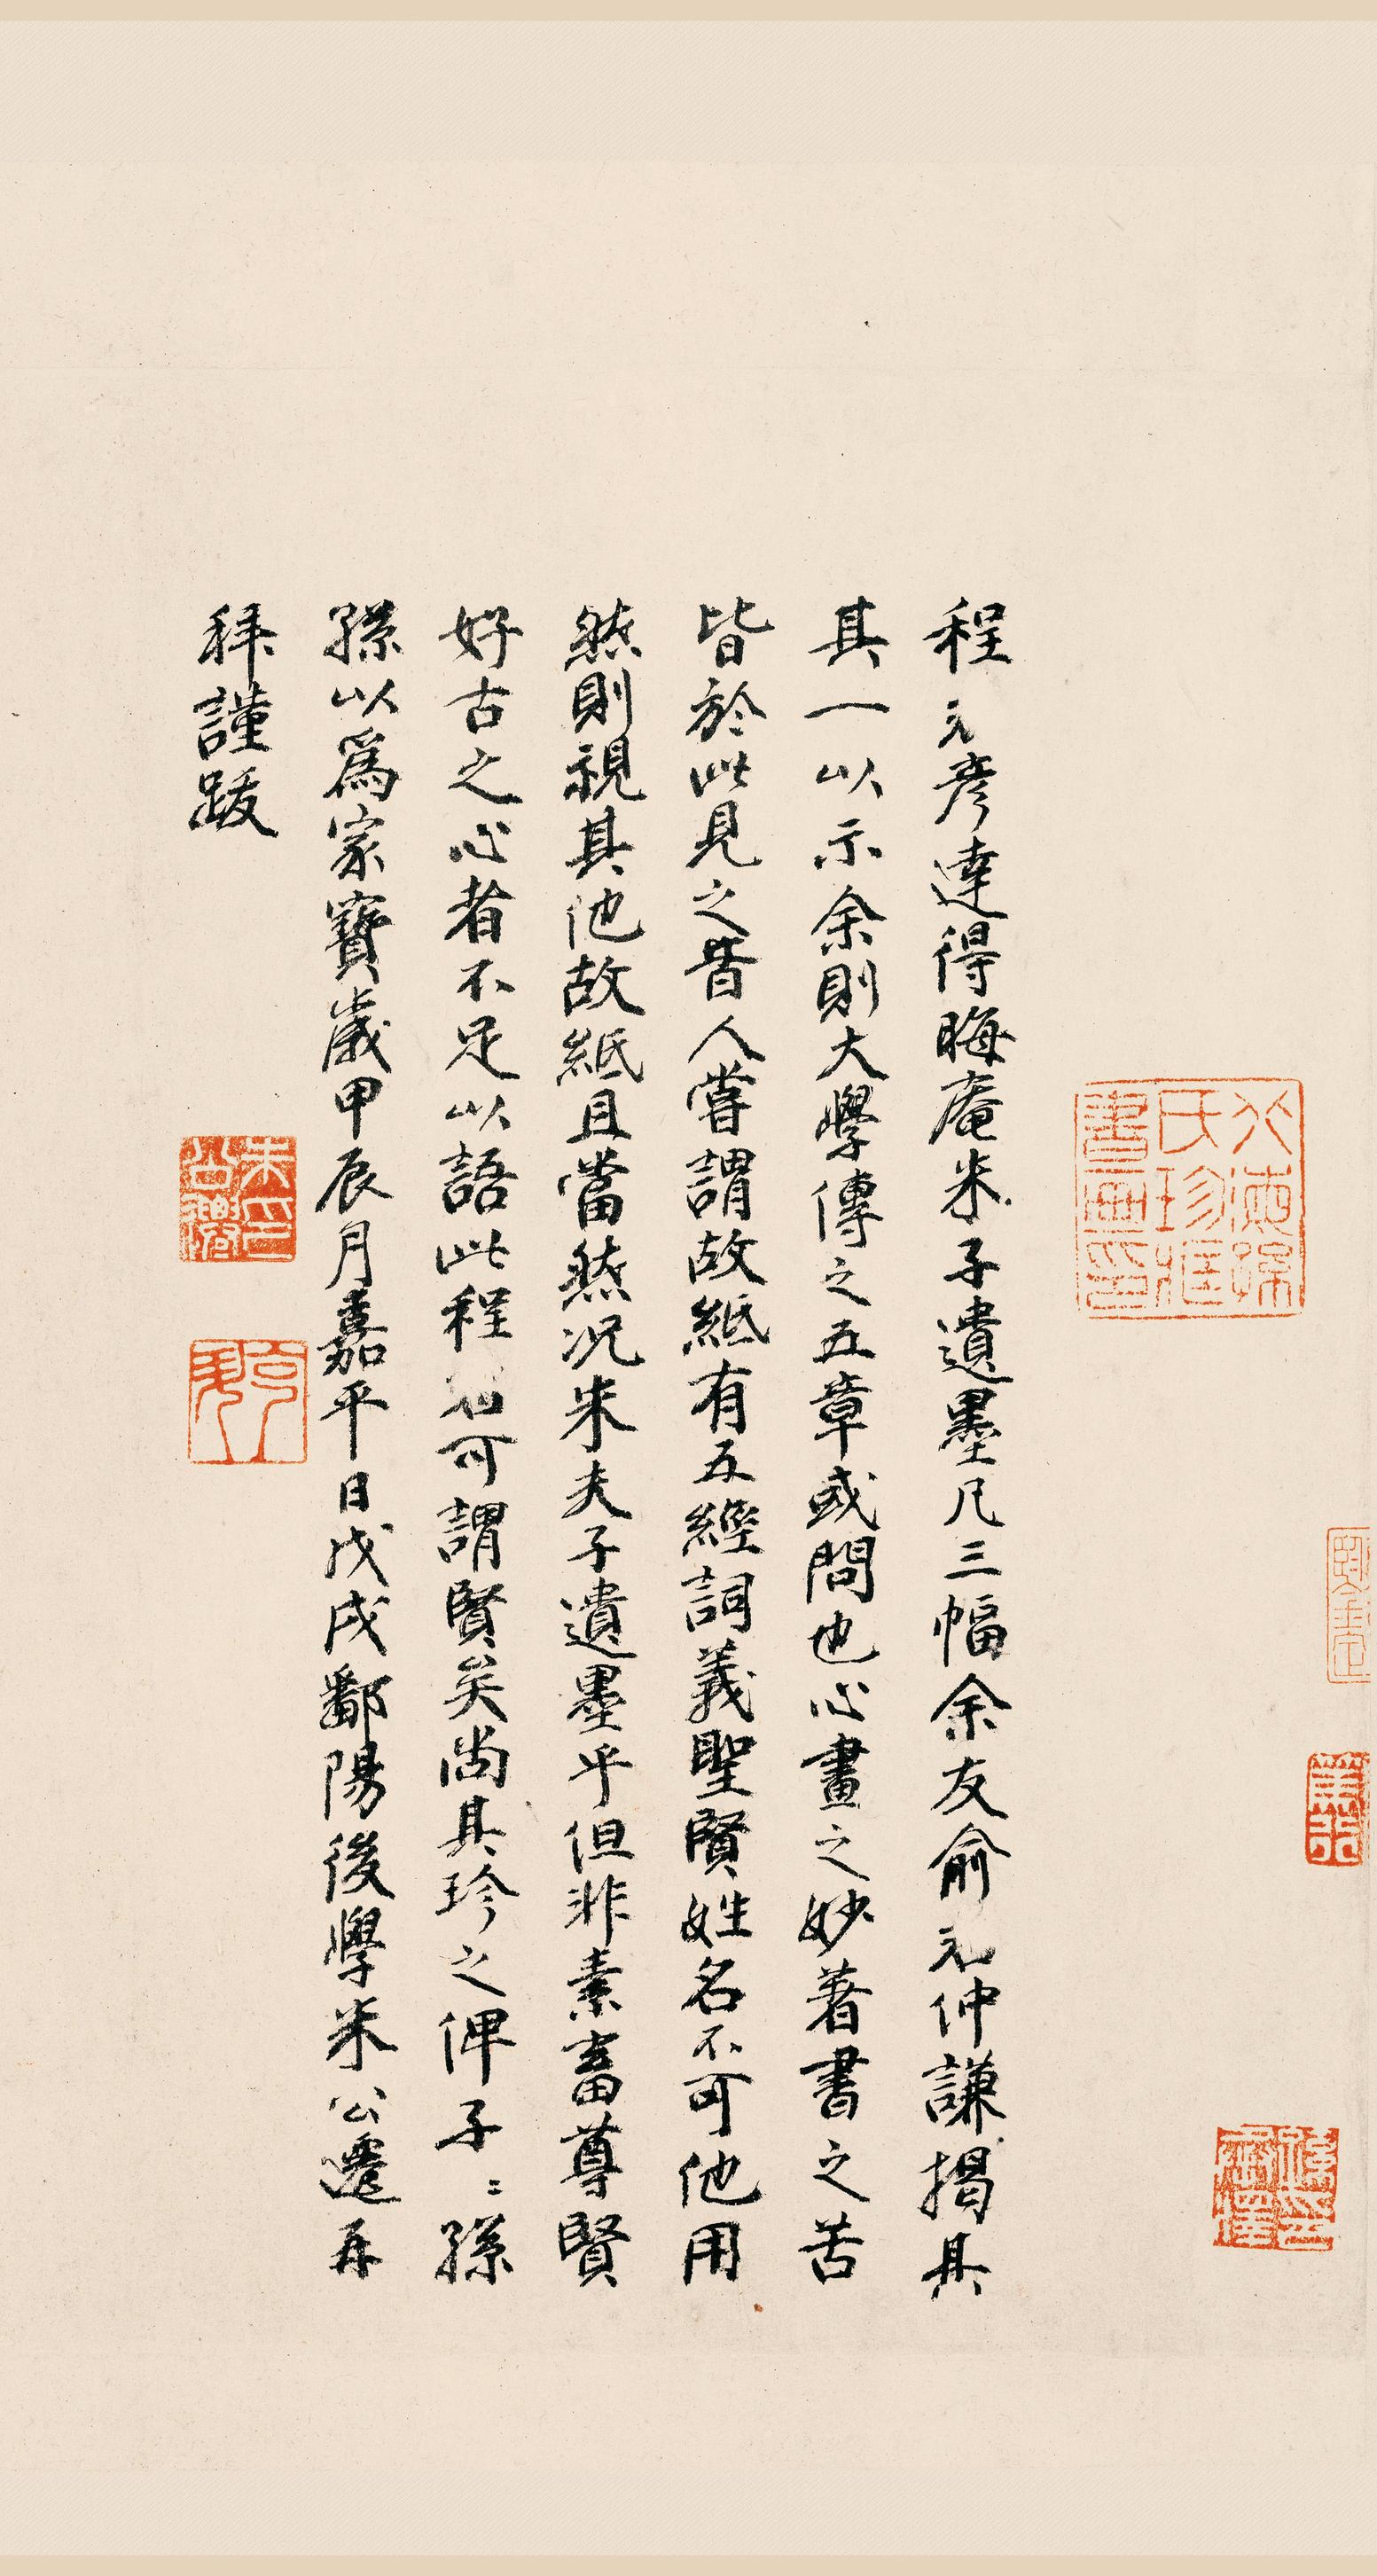 程元彦達得晦菴朱子遺墨凡三幅余友俞元仲謙揭其
其一以示余則大學傳之五章或問也心畫之妙著書之苦
皆於此見之昔人嘗謂故紙有五經詞義聖賢姓名不可他用
然則視其他故紙且當然况朱夫子遺墨乎但非素畜尊賢
好古之心者不足以語此程君可謂賢矣尚其珍之俾子〻孫
孫以爲家寶歲甲辰月嘉平日戊戌鄱陽後學朱公遷再
拜謹跋
氏珍藏
書畫印
朱印
公遷